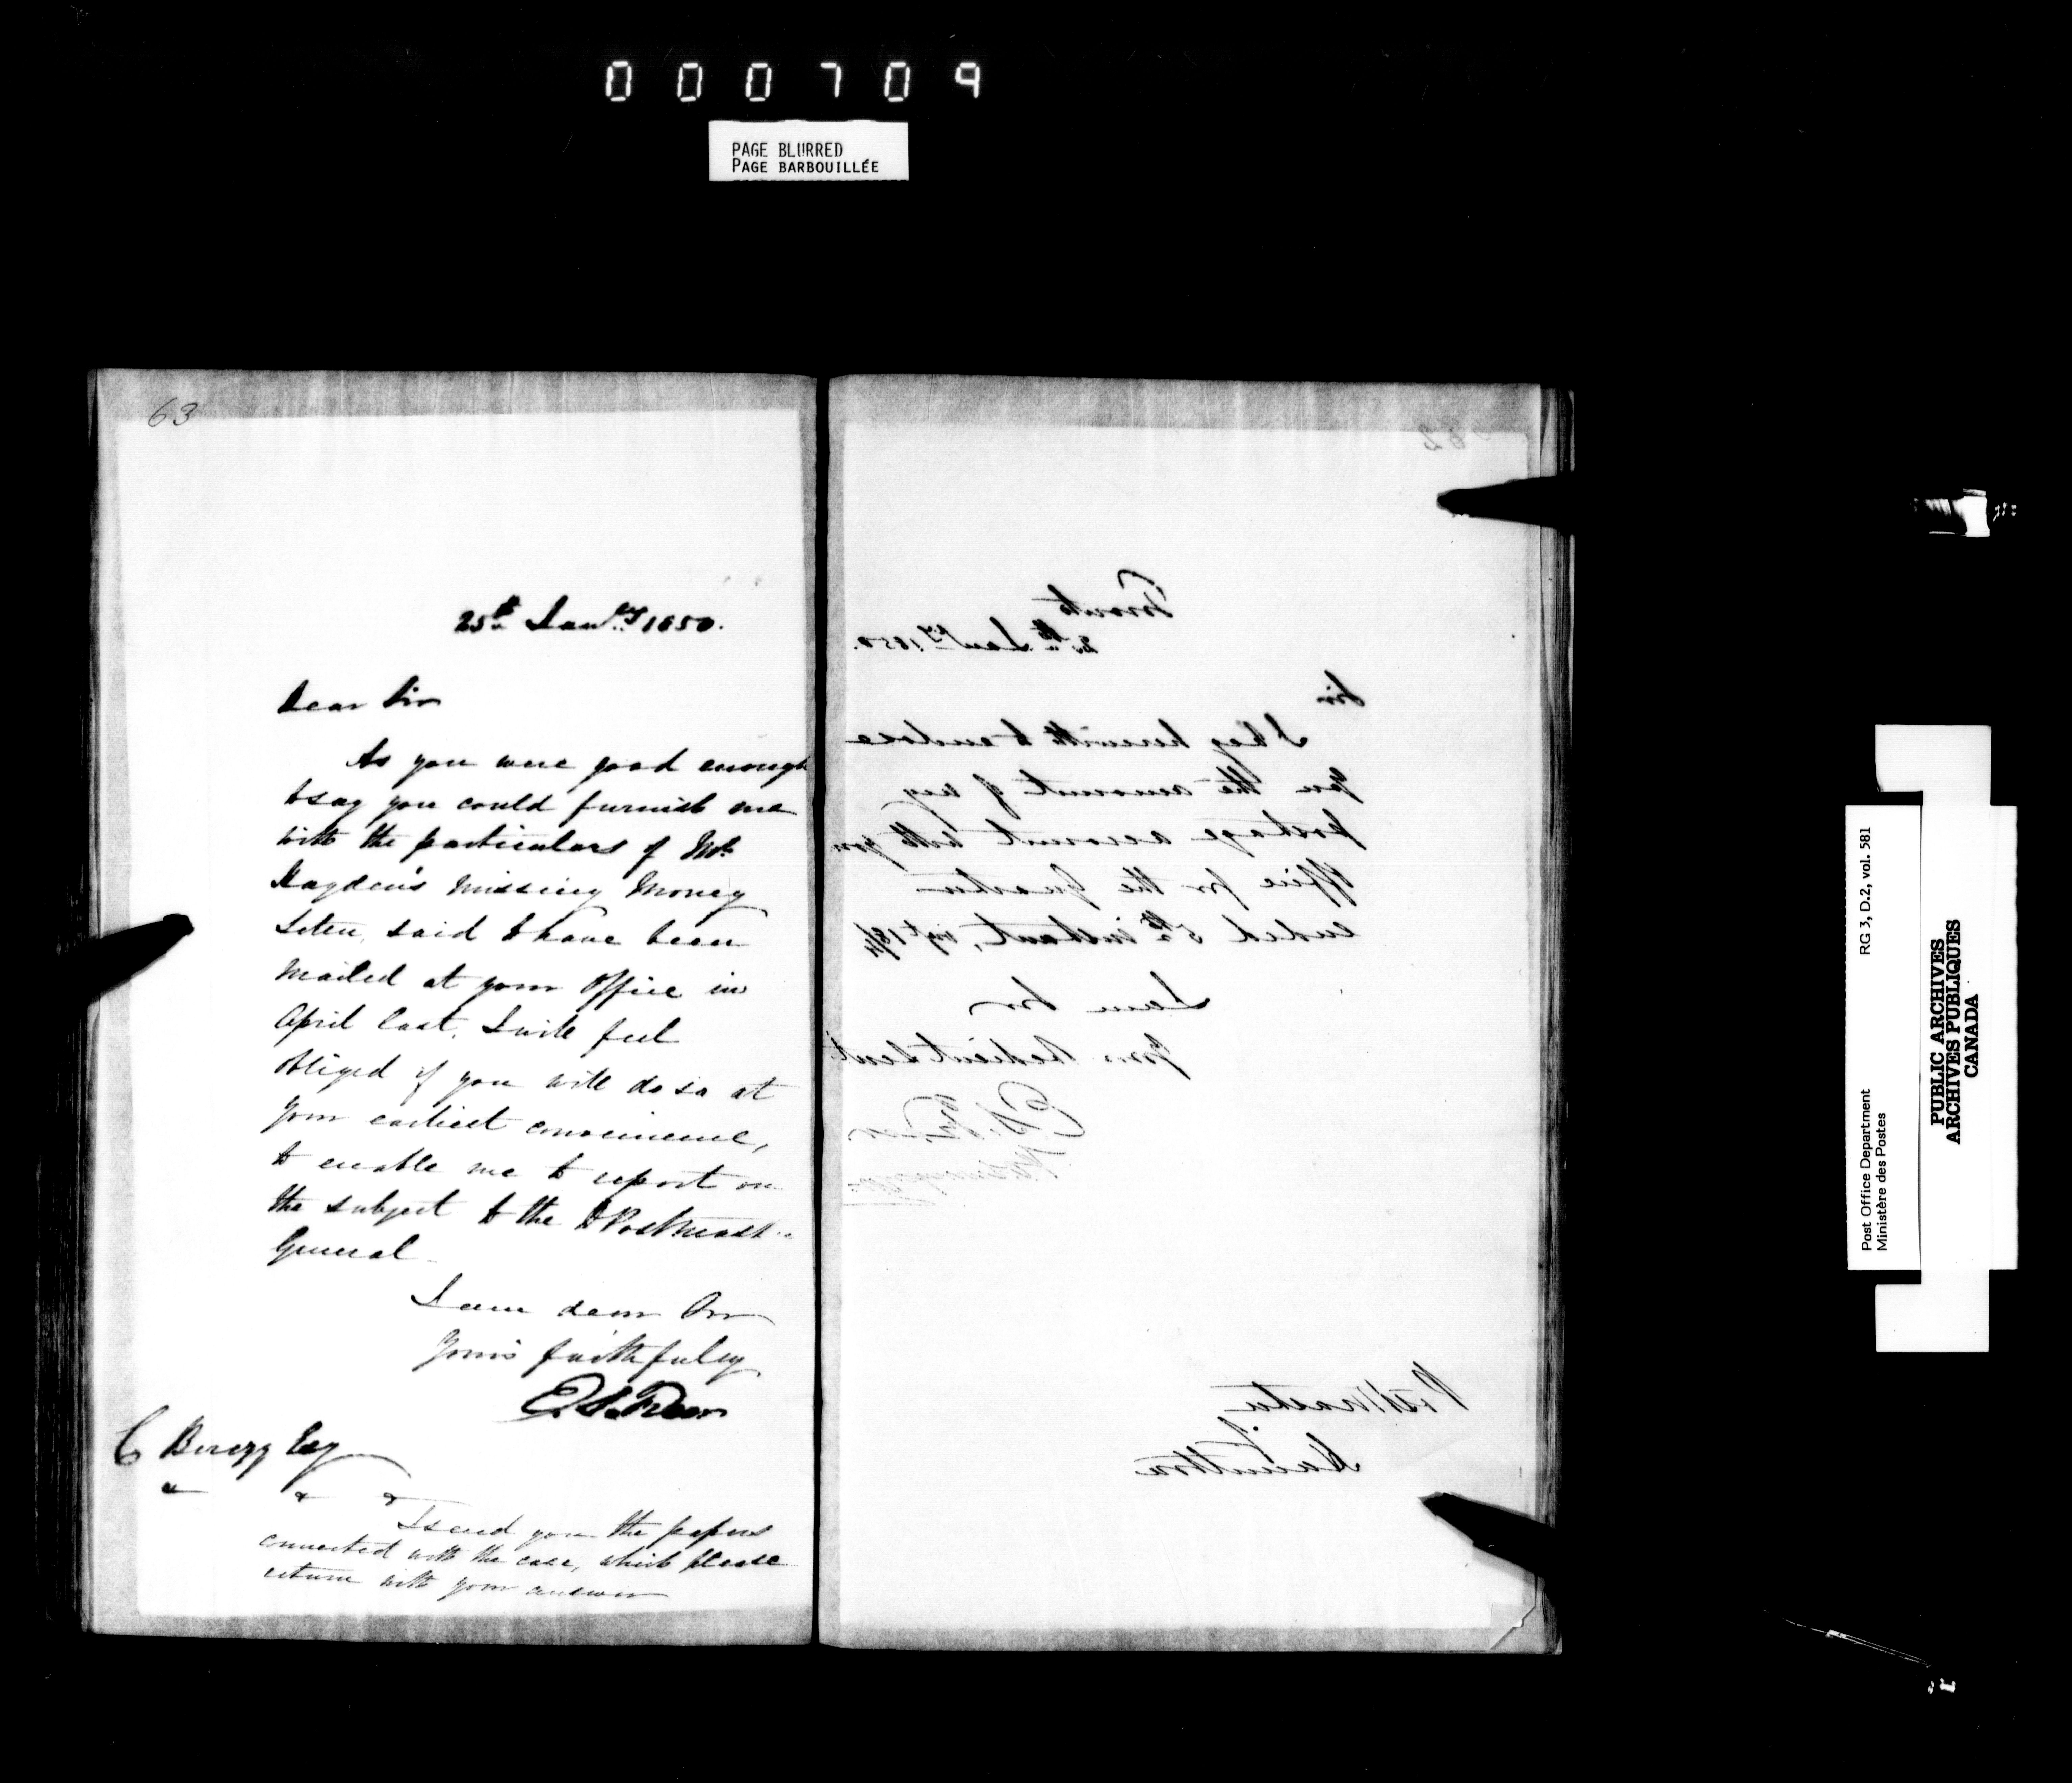 000709
PAGE BLURRED
PAGE BARBOUILLÉE
63
25th Jany 1850.
Dear Sir
As you were good enough
to say you could furnish me
with the particulars of Mr
Hayden's missing Money
Letter, said to have been
mailed at your Office in
April last. I will feel
obliged if you will do so at
your earliest convenience,
to enable me to report on
the subject to the D Postmast
General
I am dear Sir
Yours faithfully
E. S. Freer
C Berczy Esq
I send you the papers
connected with the case, which please
return with your answer
62
Toronto
25th Jany 1850.
Sir
I beg herewith to enclose
you the amount of my
postage account with your
Office for the Quarter
ended 5th Instant,
I am Sir
Your Obedient Servt
E. S. Freer
Postmaster
Hamilton
Post Office Department
Ministère des Postes
RG 3, D.2, vol. 581
PUBLIC ARCHIVES
ARCHIVES PUBLIQUES
CANADA